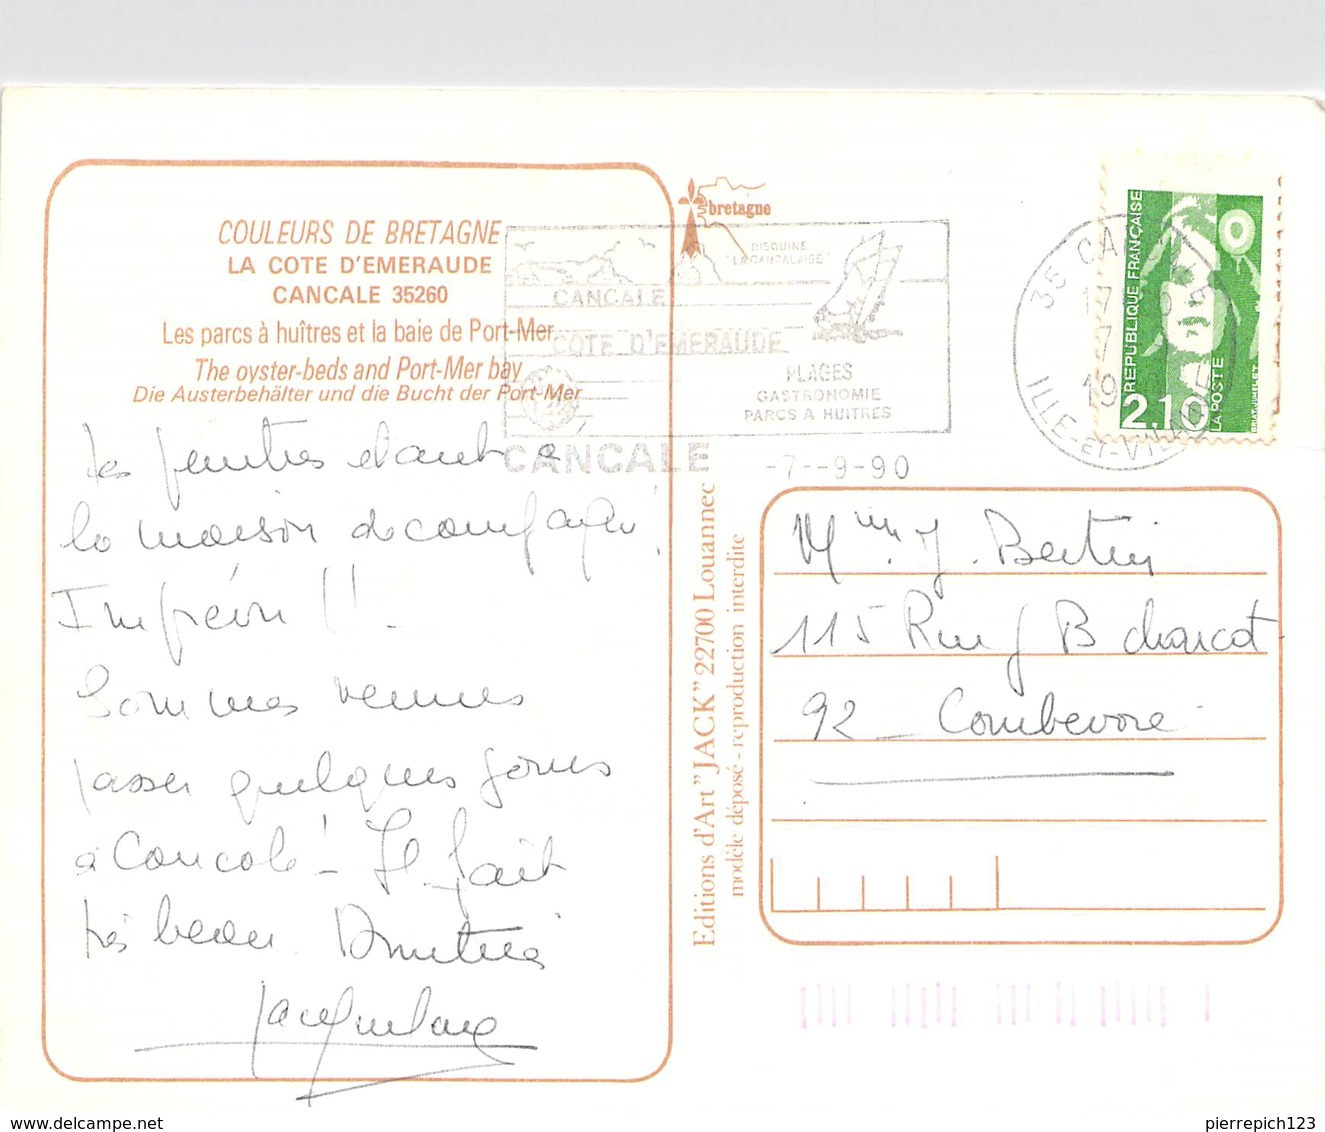 COULEURS DE BRETAGNE
LA COTE D'EMERAUDE
CANCALE 35260
Les parcs à huîtres et la baie de Port-Mer
The oyster-beds and Port-Mer bay
Die Austerbehälter und die Bucht der Port-Mer
Les peintres étant à
la maison de campagne!
Imprévu !! -
Sommes venues
passer quelques jours
à Cancale! - Il fait
très beau.
Jacqueline
bretagne
BISQUINE
"LA CANCALAISE"
CANCALE
COTE D'EMERAUDE
PLAGES
GASTRONOMIE
PARCS A HUITRES
CANCALE
-7--9-90
35 CANCALE
17
7
19
ILLE-ET-VILAINE
REPUBLIQUE FRANÇAISE
2,10
LA POSTE
Editions d'Art "JACK" 22700 Louannec
modèle déposé - reproduction interdite
Mme. J. Bertin
115 Rue J B Charcot
92 - Courbevoie
www.delcampe.net
pierrepich123